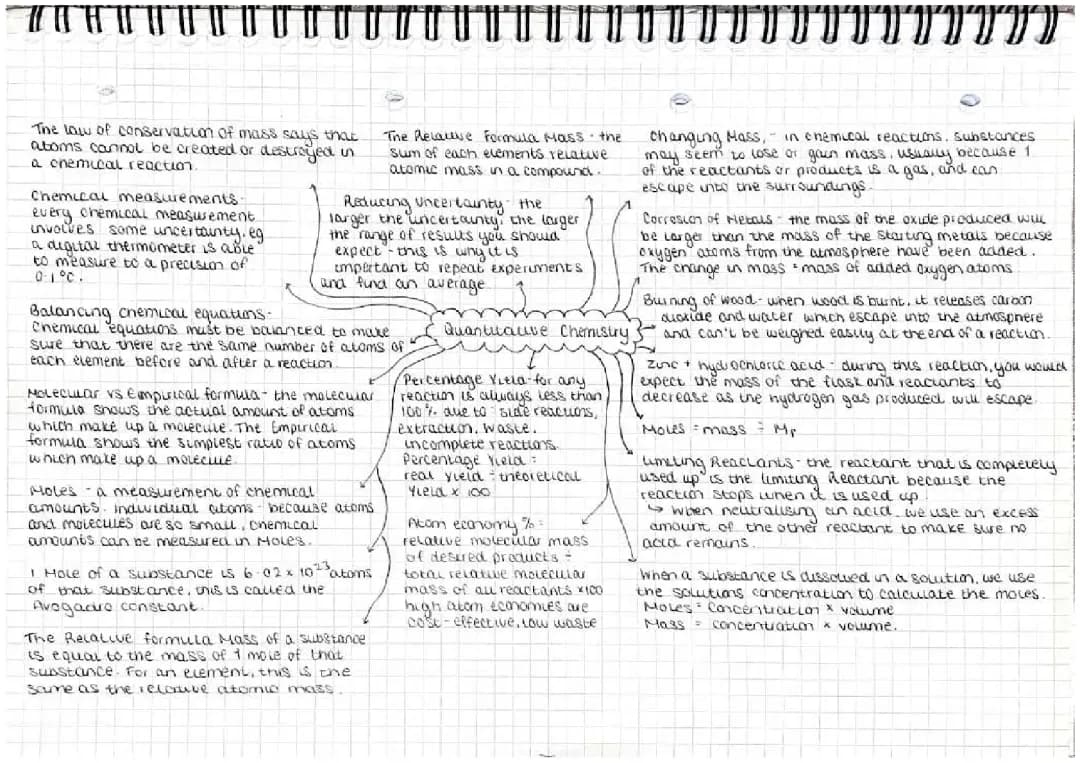 The law of conservation of mass says that
atoms cannot be created or destroyed in
a chemical reaction.
The Relative Formula Mass - the
sum of each elements relative
atomic mass in a compound.
Changing Mass, - in chemical reactions, substances
may seem to lose or gain mass, usually because 1
of the reactants or products is a gas, and can
escape into the surroundings.
Chemical measurements-
every chemical measurement
involves some uncertainty, eg
a digital thermometer is able
to measure to a precision of
0.1°C.
Reducing Uncertainty - the
larger the uncertainty, the larger
the range of results you should
expect - this is why it is
important to repeat experiments
and find an average
Corrosion of Metals - the mass of the oxide produced will
be larger than the mass of the starting metals because
oxygen atoms from the atmosphere have been added.
The change in mass = mass of added oxygen atoms.
Burning of wood - when wood is burnt, it releases carbon
dioxide and water which escape into the atmosphere
and can't be weighed easily at the end of a reaction.
Quantitative Chemistry
Balancing chemical equations-
Chemical equations must be balanced to make
sure that there are the same number of atoms of
each element before and after a reaction.
Zinc + hydrochloric acid - during this reaction, you would
expect the mass of the flask and reactants to
decrease as the hydrogen gas produced will escape.
Molecular vs Empirical formula - the molecular
formula shows the actual amount of atoms
which make up a molecule. The Empirical
formula shows the simplest ratio of atoms
which make up a molecule.
Percentage Yield - for any
reaction is always less than
100% due to side reactions,
extraction, waste,
incomplete reactions.
Percentage Yield =
real yield ÷ theoretical
Yield x 100
Moles = mass ÷ Mr
Limiting Reactants - the reactant that is completely
used up is the limiting Reactant because the
reaction stops when it is used up.
↳ when neutralising an acid we use an excess
amount of the other reactant to make sure no
acid remains.
Moles - a measurement of chemical
amounts. Individual atoms - because atoms
and molecules are so small, chemical
amounts can be measured in Moles.
Atom economy % =
relative molecular mass
of desired products ÷
total relative molecular
mass of all reactants x100
high atom economies are
cost-effective, low waste
1 Mole of a substance is 6.02 x 10²³ atoms
of that substance, this is called the
Avogadro constant.
When a substance is dissolved in a solution, we use
the solutions concentration to calculate the moles.
Moles = Concentration x volume
Mass = concentration x volume.
The Relative formula Mass of a substance
is equal to the mass of 1 mole of that
substance. For an element, this is the
same as the relative atomic mass.